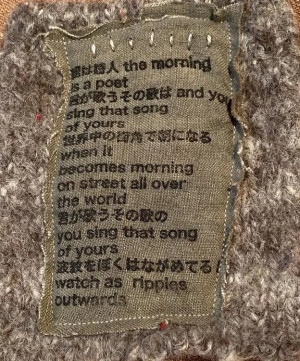 朝は詩人 the morning
is a poet
君が歌うその歌は and you
sing that song
of yours
世界中の街角で朝になる
when it
becomes morning
on street all over
the world
君が歌うその歌の
you sing that song
of yours
波紋をぼくはながめてる
watch as ripples
outwards